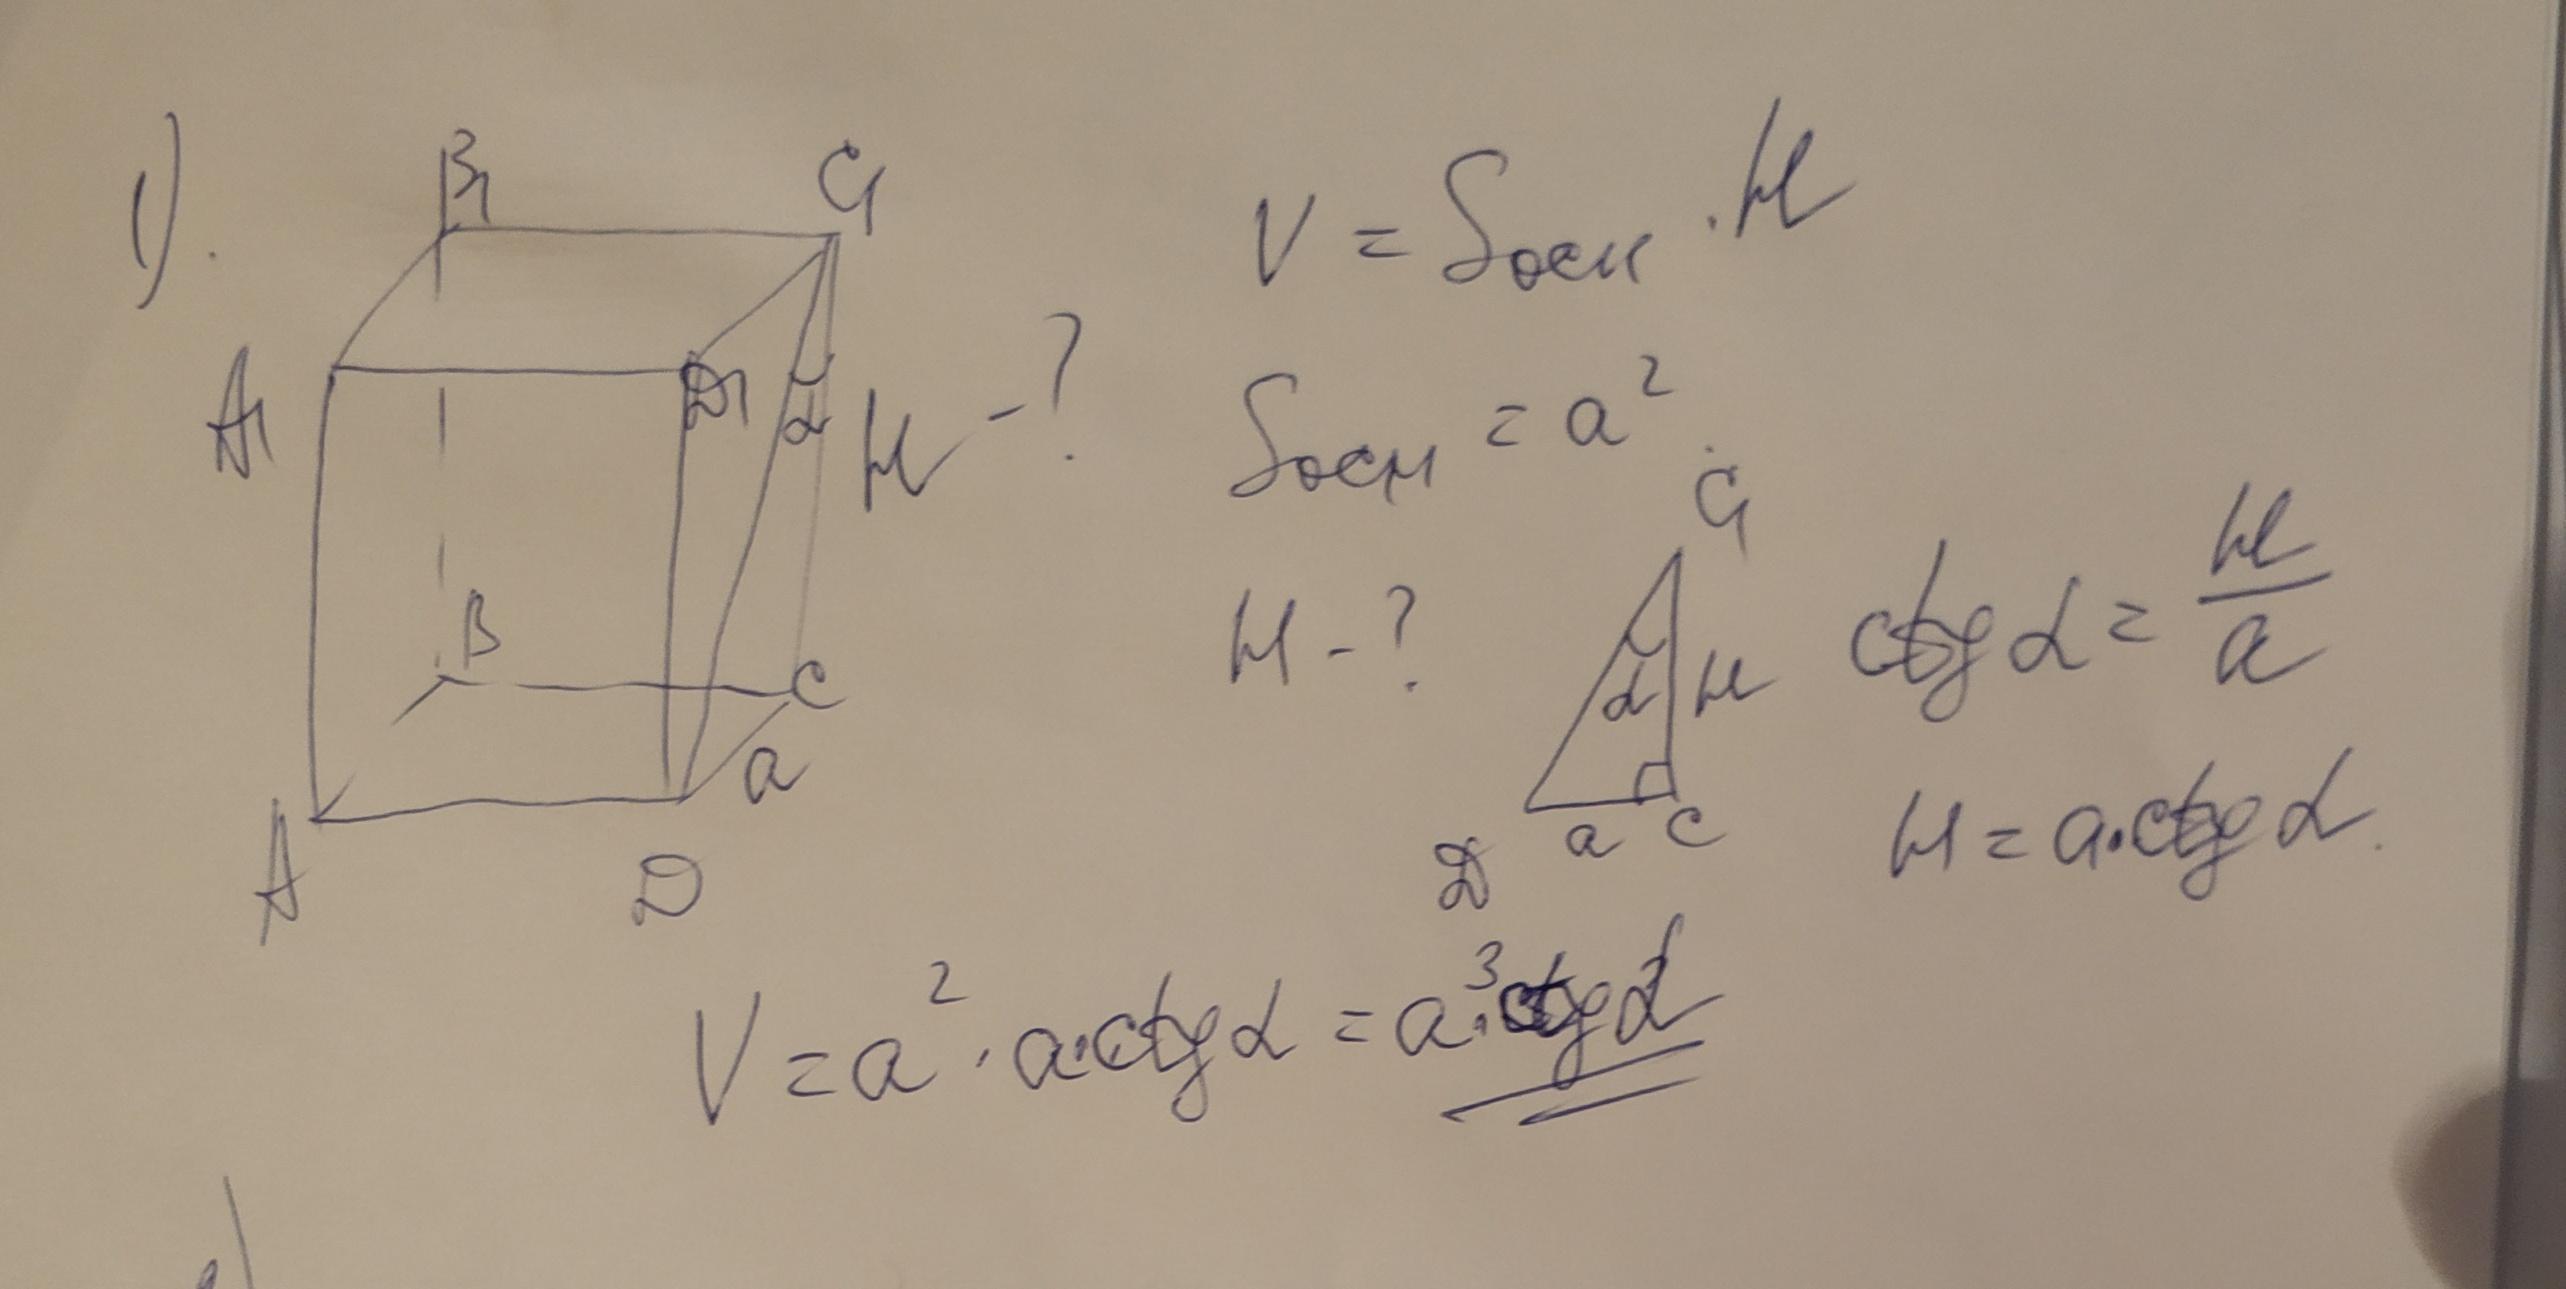 1).
B₁ C₁
A₁ D₁ α H - ?
B C
a
A D
V = Sосн · H
Sосн = a².
H - ?
C₁
α H
D a C
ctg α = H/a
H = a·ctg α.
V = a² · a·ctg α = a³·ctg α